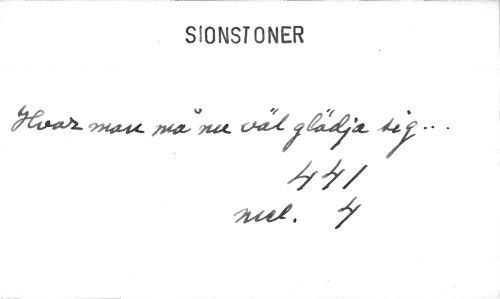 SIONSTONER
Hvar man må nu väl glädja sig...
441
mel. 4